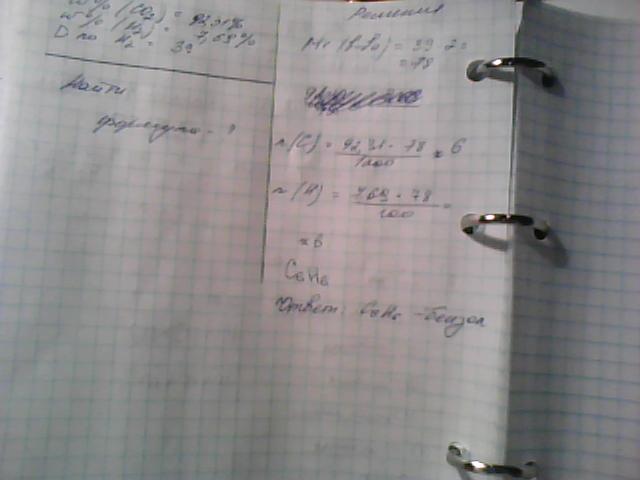 w % (CO₂) = 92,31%
w % (H₂) = 7,69%
D по H₂ = 39
Найти
формулу - ?
Решение
Mr (в-во) = 39 · 2 =
= 78
n (C) = 92,31 · 78 / 1200 = 6
n (H) = 7,69 · 78 / 100 =
= 6
C₆H₆
Ответ: C₆H₆ - бензол